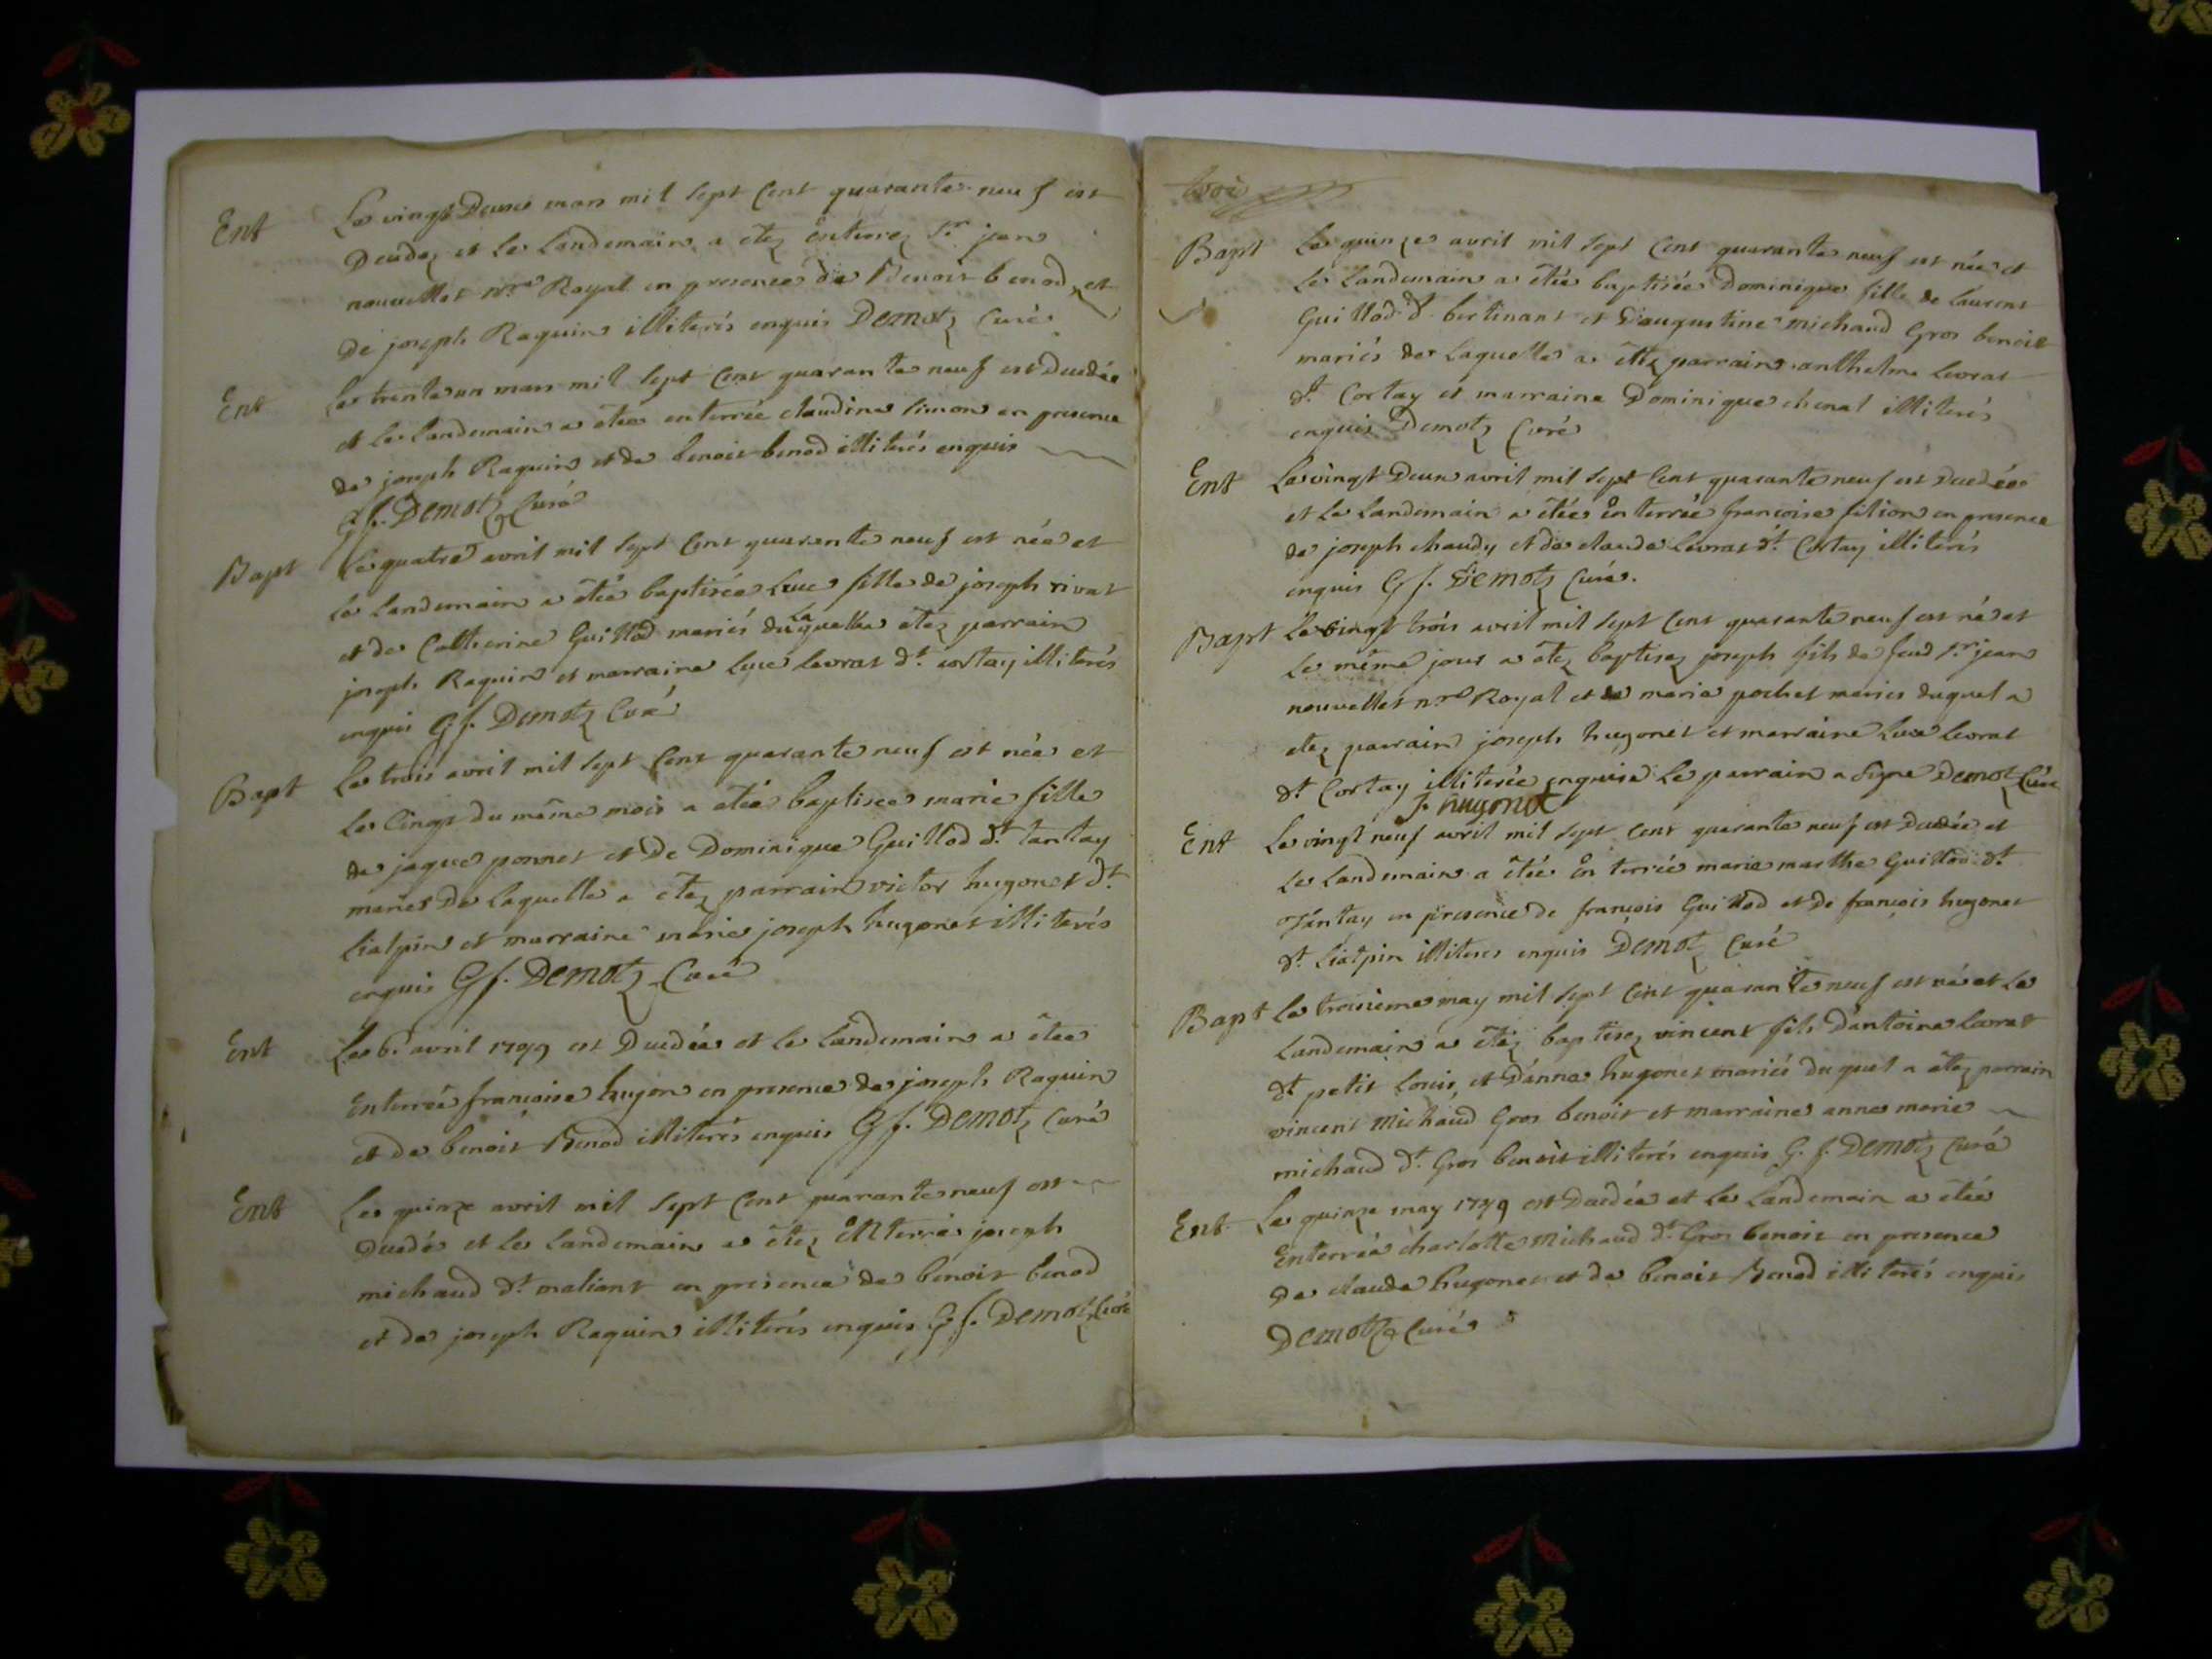 Ent Le vingt Deux mars mil sept Cent quarante neuf est
Decedez et le Landemain a étez Enterrez Sr. jean
nouvellet nre. Royal en presence de Benoit benod et
de joseph Raquin illiterés enquis Demotz Curé
Ent Le trente un mars mil sept Cent quarante neuf est Decedée
et le landemain a étée enterrée claudine simon en presence
de joseph Raquin et de benoit benod illiterés enquis
G f. Demotz Curé
Bapt Le quatre avril mil sept Cent quarante neuf est née et
le landemain a étée baptisée Luce fille de joseph rivat
et de Catherine Guillod mariés du la quelle étez parrain
joseph Raquin et marraine Luce levrat dt. cortay illiterés
enquis G f. Demotz Curé
Bapt Le trois avril mil sept Cent quarante neuf est née et
le Cinq du même mois a étée baptisée marie fille
de jaque ponnet et De Dominique Guillod dt. tantay
mariés De laquelle a étez parrain victor hugonet dt.
lialpin et marraine marie joseph hugonet illiterés
enquis G f. Demotz Curé
Ent Le 6. avril 1749 est Decedée et le Landemain a étée
Enterrée francoise hugon en presence de joseph Raquin
et de benoit Benod illiterés enquis G f. Demotz Curé
Ent Le quinze avril mil sept Cent quarante neuf est
Decedé et le landemain a étez Enterré joseph
michaud dt. maliant en presence de benoit benod
et de joseph Raquin illiterés enquis G f. Demotz Curé
trois
Bapt Le quinze avril mil sept Cent quarante neuf est née et
le landemain a étée baptisée Dominique fille de laurent
Guillod dt. bertinant et D'augustine michaud Gros benoit
mariés de laquelle a étez parrain anthelme levrat
dt. Cortay et marraine Dominique chenal illiterés
enquis Demotz Curé
Ent Le vingt Deux avril mil sept Cent quarante neuf est Decedée
et le landemain a étée En terrée francoise filion en presence
de joseph chaudy et de claude levrat dt. Cortay illiterés
enquis G f. Demotz Curé.
Bapt Le vingt trois avril mil sept Cent quarante neuf est né et
le même jour a étez baptisez joseph fils de feu Sr. jean
nouvellet nre Royal et de marie pochet mariés duquel a
etez parrain joseph hugonet et marraine Luce levrat
dt Cortay illiterée enquise le parrain a signe Demotz Curé
J. hugonet
Ent Le vingt neuf avril mil sept Cent quarante neuf est Decedée et
le landemain a étée En terrée marie marthe Guillod dt.
Tantay en presence de françois Guillod et de françois hugonet
dt. lialpin illiteres enquis Demotz Curé
Bapt Le troisieme may mil sept Cent quarante neuf est né et le
landemain a étéz baptisez vincent fils D'antoine levrat
dt petit Louis, et D'anne hugonet mariés duquel a étez parrain
vincent Michaud Gros benoit et marraine anne marie
michaud dt. Gros benoit illiterés enquis G. f. Demotz Curé
Ent. Le quinze may 1749 est Decedée et le landemain a étée
Enterrée charlotte Michaud dt. Gros benoit en presence
De claude hugonet et de benoit Benod illiterés enquis
Demotz Curé